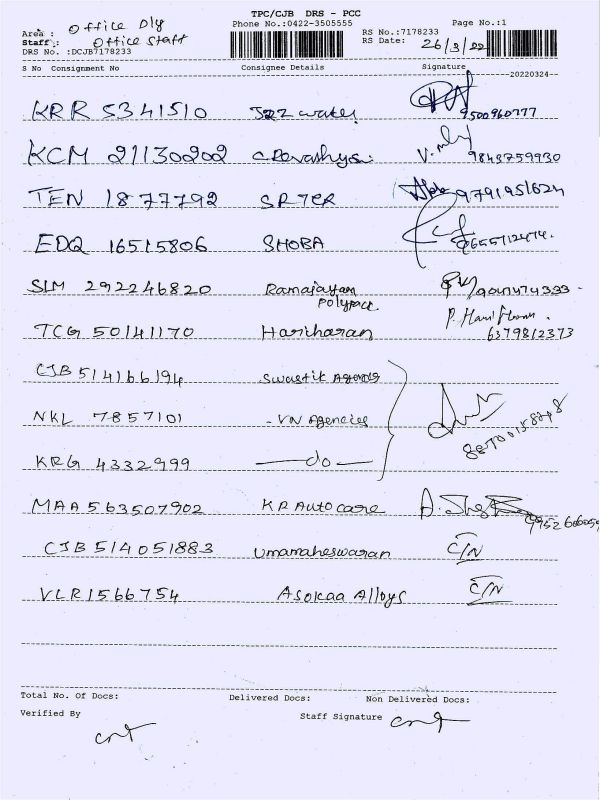 TPC/CJB DRS - PCC
Phone No.:0422-3505555
Page No.:1
Area : Office Dly
Staff : Office Staff
DRS No. :DCJB7178233
RS No.:7178233
RS Date: 26/3/22
S No Consignment No Consignee Details Signature
20220324
KRR 5341510 water 9500960777
KCM 21130202 9843759930
TEN 1877792 9791951624
EDQ 16515806 SHOBA
SLM 292246820 Ramajayam
polypack
TCG 50141170 Hariharan P. Hariharan
6379812373
CJB 514166194 Swastik Agencies
NKL 7857101 - VN Agencies
KRG 4332999 — do —
MAA 563507902 KR Auto care
CJB 514051883 Umamaheswaran C/N
VLR 1566754 Asokaa Alloys C/N
Total No. Of Docs: Delivered Docs: Non Delivered Docs:
Verified By
Staff Signature